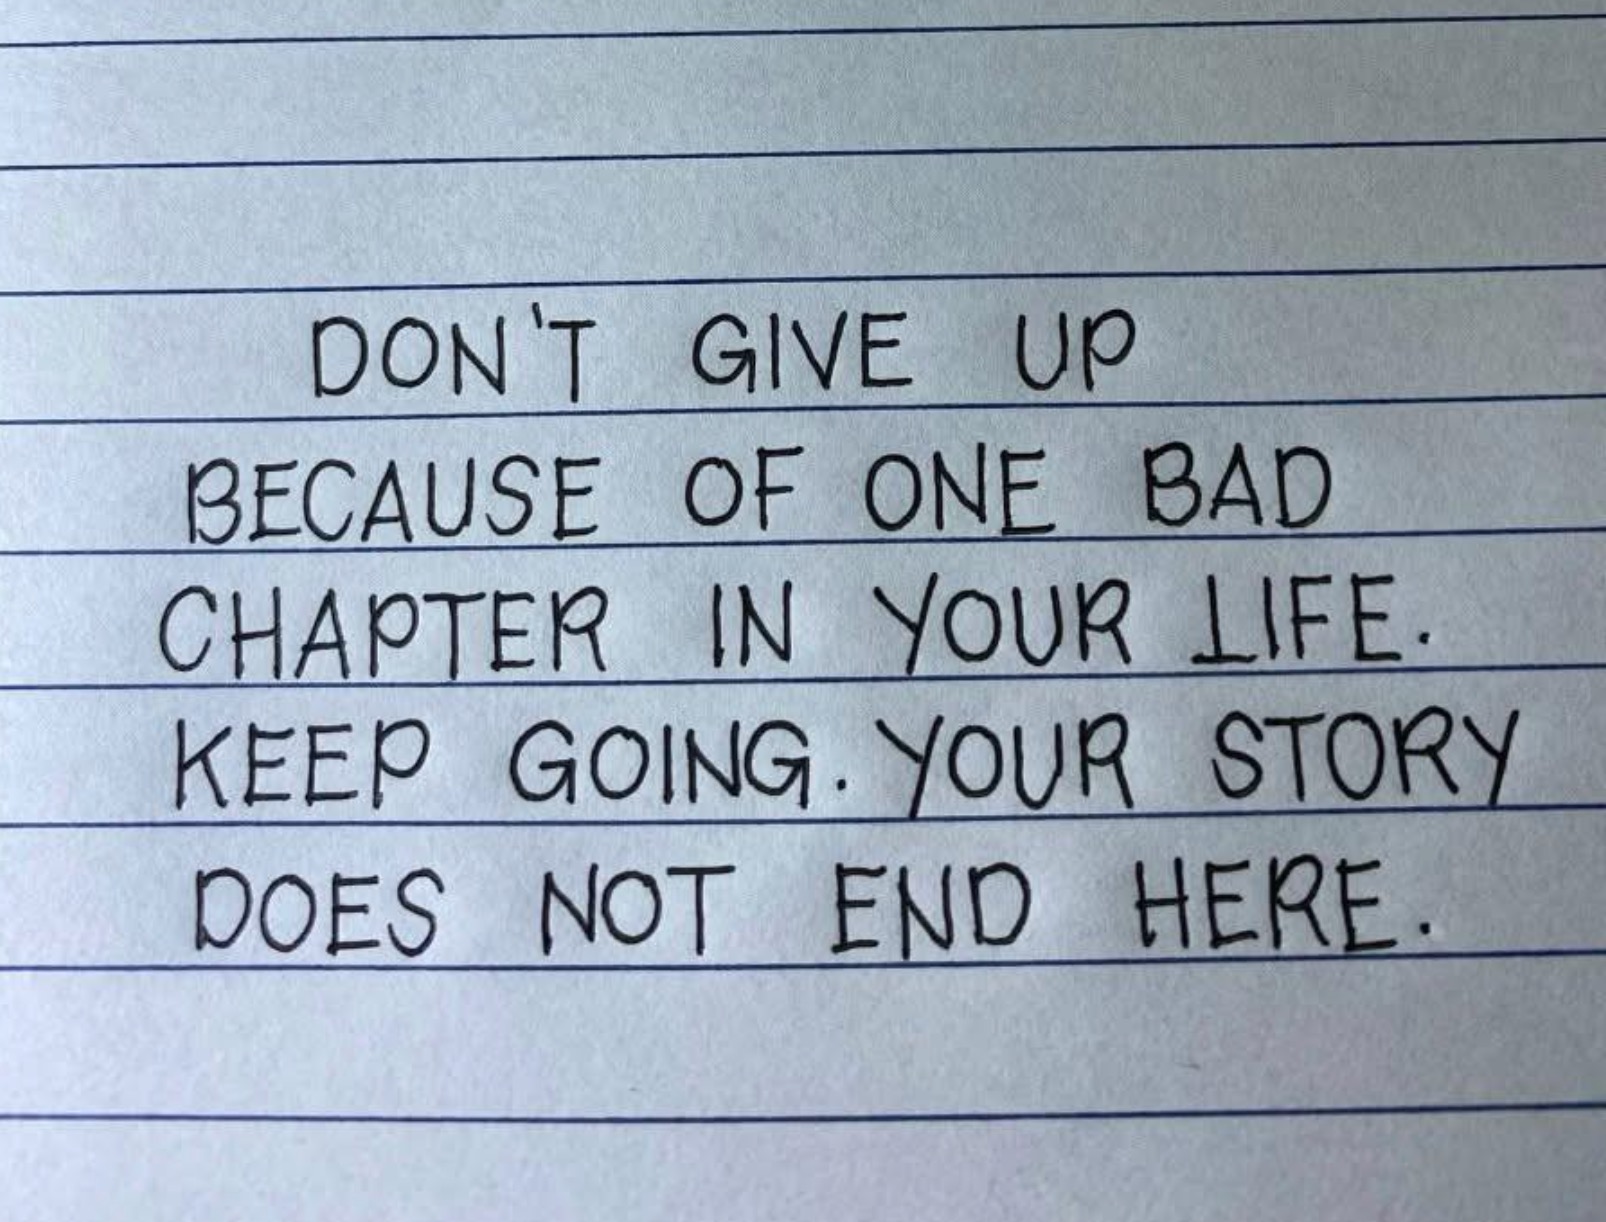 DON'T GIVE UP
BECAUSE OF ONE BAD
CHAPTER IN YOUR LIFE.
KEEP GOING. YOUR STORY
DOES NOT END HERE.